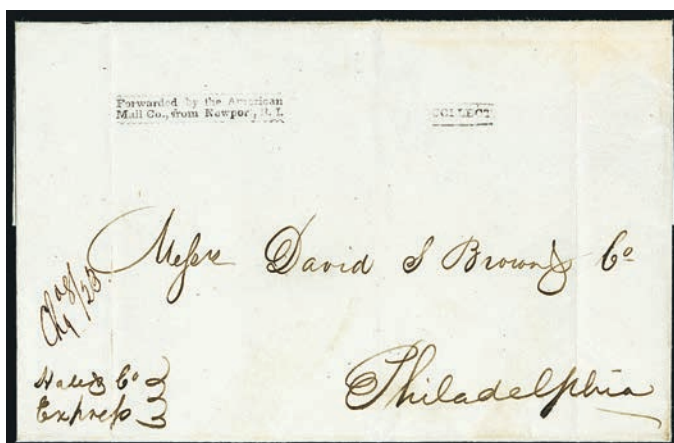 Forwarded by the American
Mail Co., from Newport, R. I.
COLLECT
Messrs David S Brown & Co
Philadelphia
Hale & Co
Express